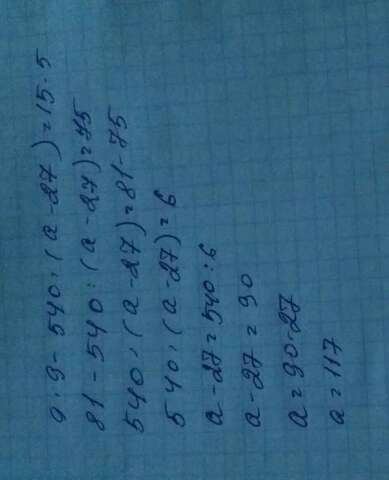 9·9-540:(a-27)=15·5
81-540:(a-27)=75
540:(a-27)=81-75
540:(a-27)=6
a-27=540:6
a-27=90
a=90-27
a=117